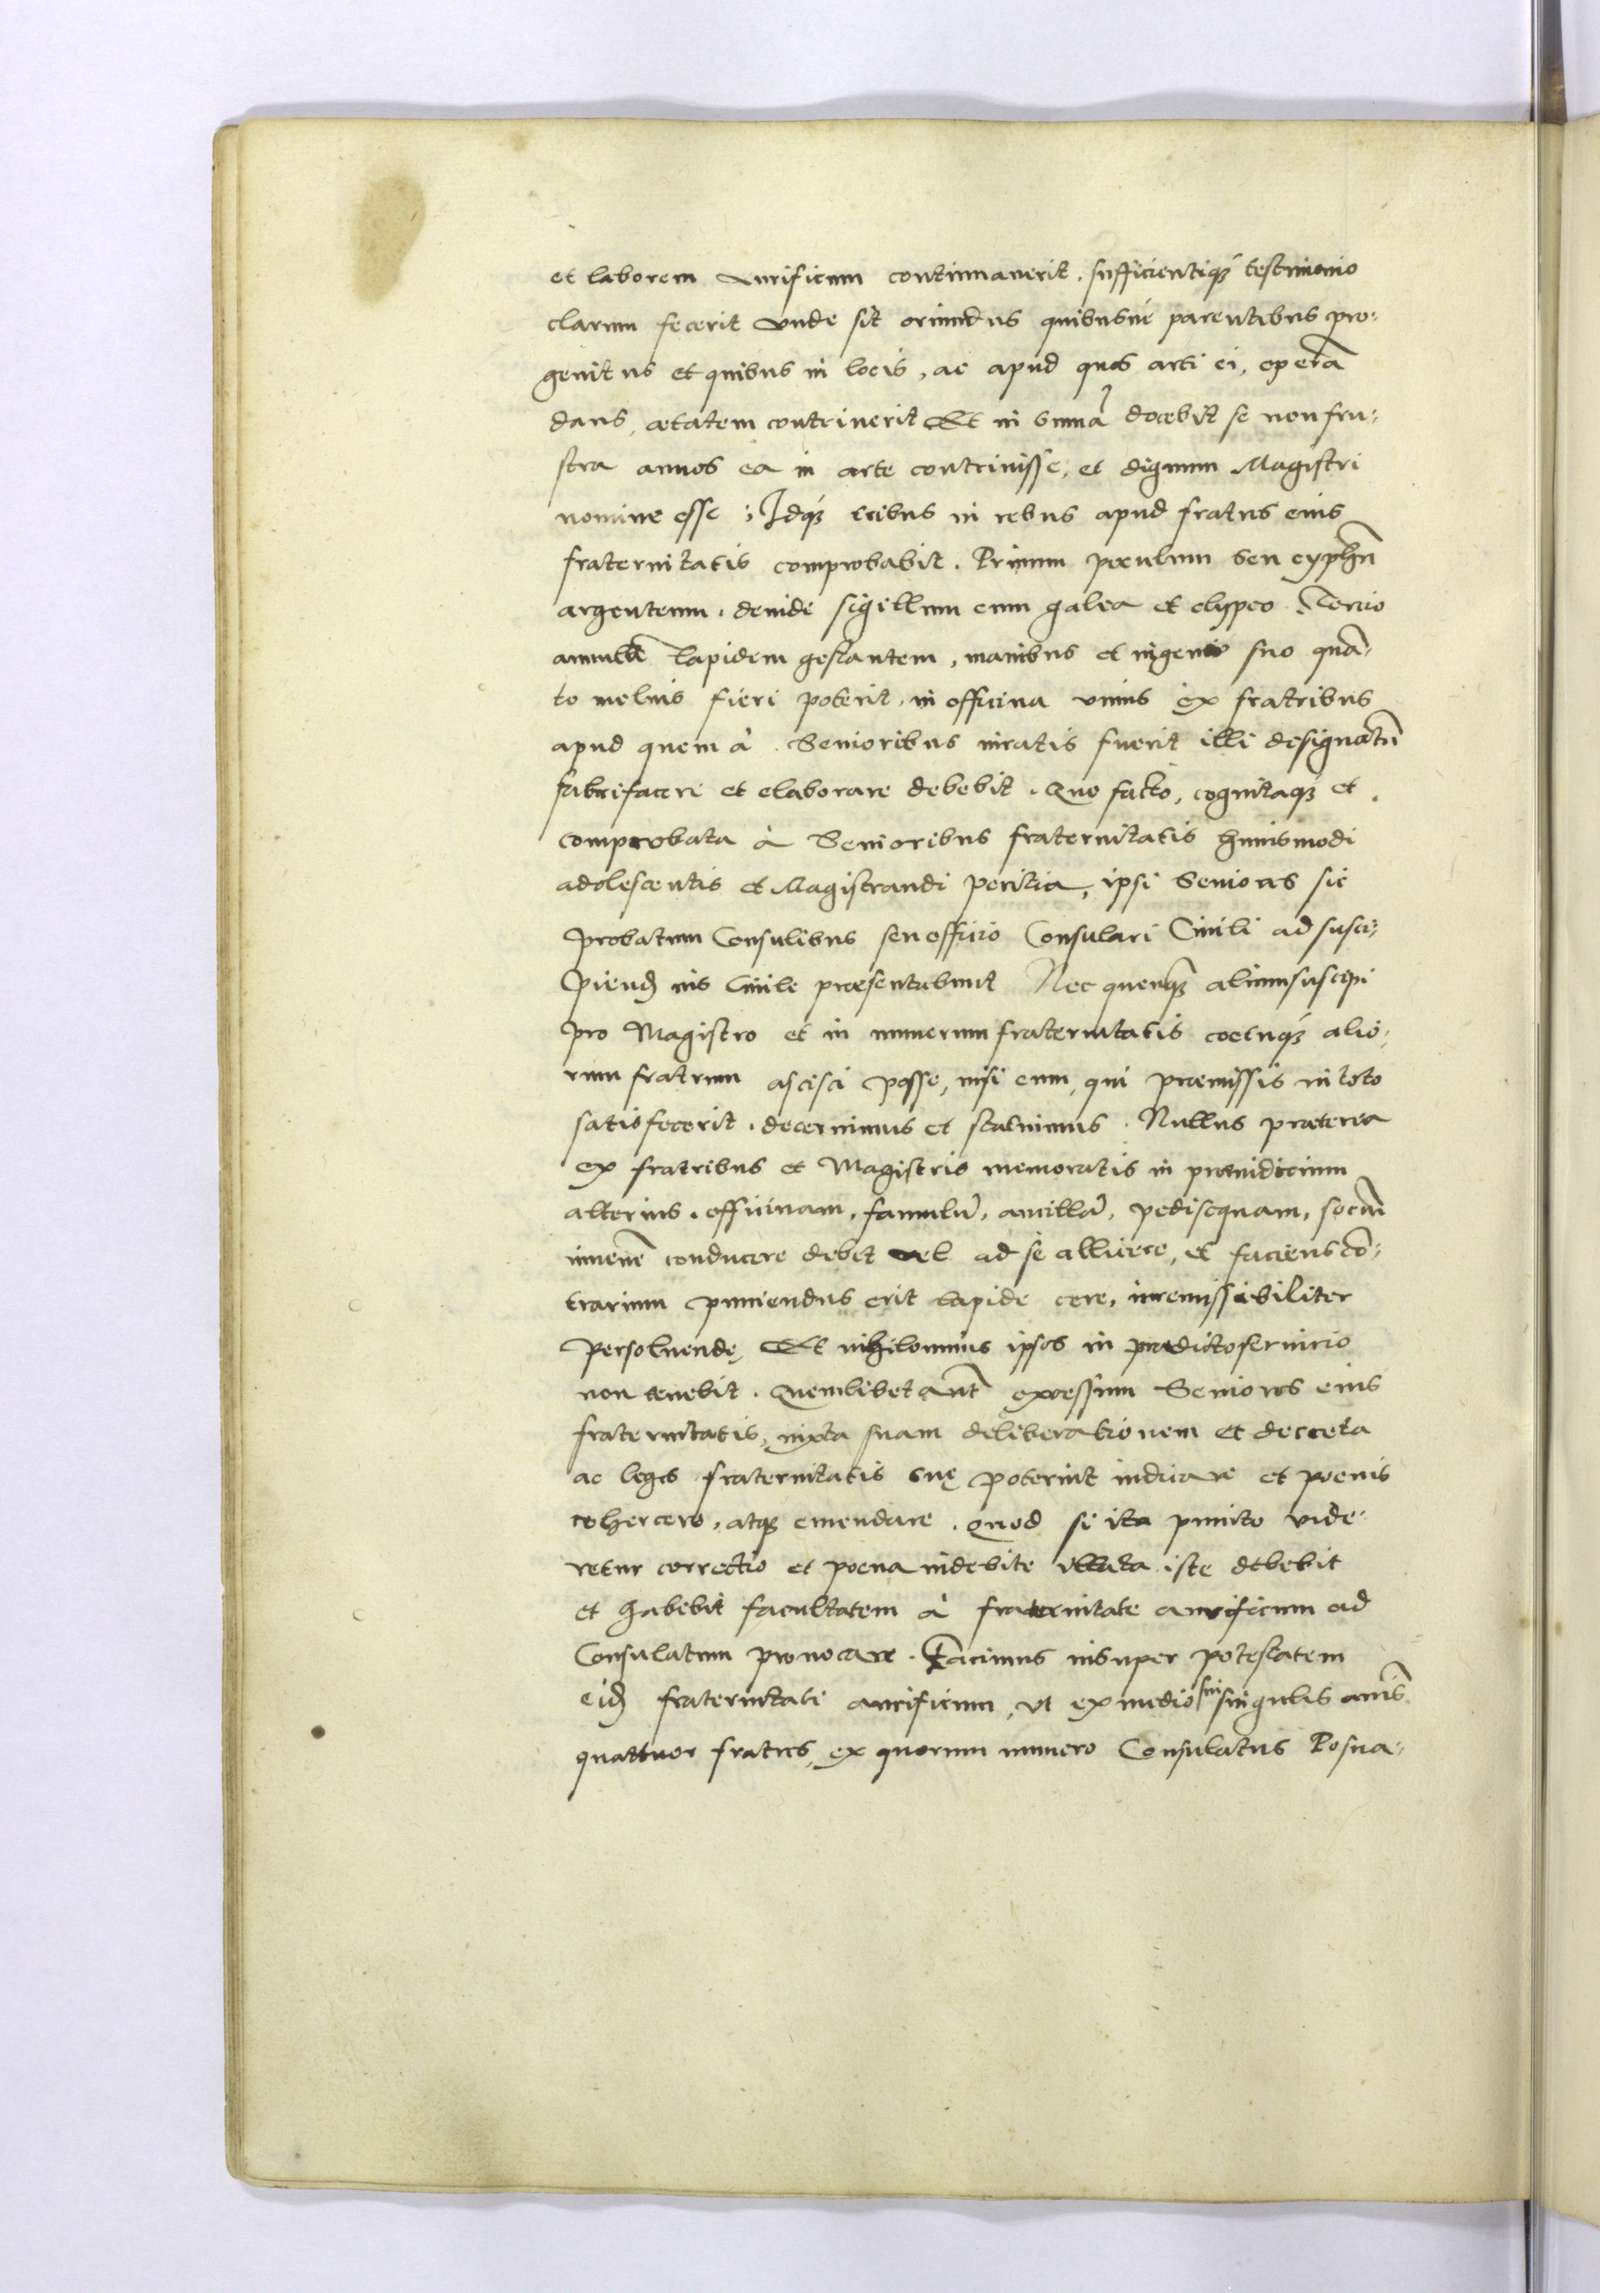 et laborem Aurificum continuauerit. sufficientiq́ꝫ testimonio
clarum fecerit vnde sit oriundus quibusúe parentibus pro-
genitus et quibus in locis, ac apud quos arti ei, operā
dans, ætatem contriuerit Et in sūmā docebit se non fru-
stra annos ea in arte contriuisse, et dignum Magistri
nomine esse; Idq́ꝫ tribus in rebus apud fratres eius
fraternitatis comprobabit. Primum poculum seu cyphū
argenteum. deinde sigillum cum galea et clypeo Tertio
annulū lapidem gestantem, manibus et ingenio suo quā-
to melius fieri poterit, in officina vnius ex fratribus
apud quem à Senioribus iuratis fuerit illi designatū
fabrifacere et elaborare debebit. Quo facto, cognitaqꝫ et
comprobata à Senioribus fraternitatis huiusmodi
adolescentis et Magistrandi peritia, ipsi Seniores sic
probatum Consulibus seu officio Consulari Ciuili ad susci-
piend ius Ciuile præsentabunt Nec quenqꝫ alium suscipi
pro Magistro et in numerum fraternitatis coetuq́ꝫ alio-
rum fratrum ascisci posse, nisi eum, qui præmissis in toto
satisfecerit. decernimus et statuimus. Nullus præterea
ex fratribus et Magistris memoratis in præiudicium
alterius. officinam, famulū, ancillā, pedisequam, sociū
iuuenē conducere debet vel ad se allicere, et faciens cō-
trarium puniendus erit lapide cere, irremissibiliter
persoluendę, Et nihilominus ipsos in prædicto seruicio
non tenebit. Quemlibet autē excessum Seniores eius
fraternitatis, iuxta suam deliberationem et decreta
ac leges fraternitatis suę poterint iudicare et poenis
cohercere, atqꝫ emendare. Quod si ita punito vide-
retur correctio et poena indebite illata iste debebit
et habebit facultatem à fraternitate aurificum ad
Consulatum prouocare. Facimus insuper potestatem
eid fraternitati aurificum, vt ex medio sui singulis annis
quattuor fratres, ex quorum numero Consulatus Posna-